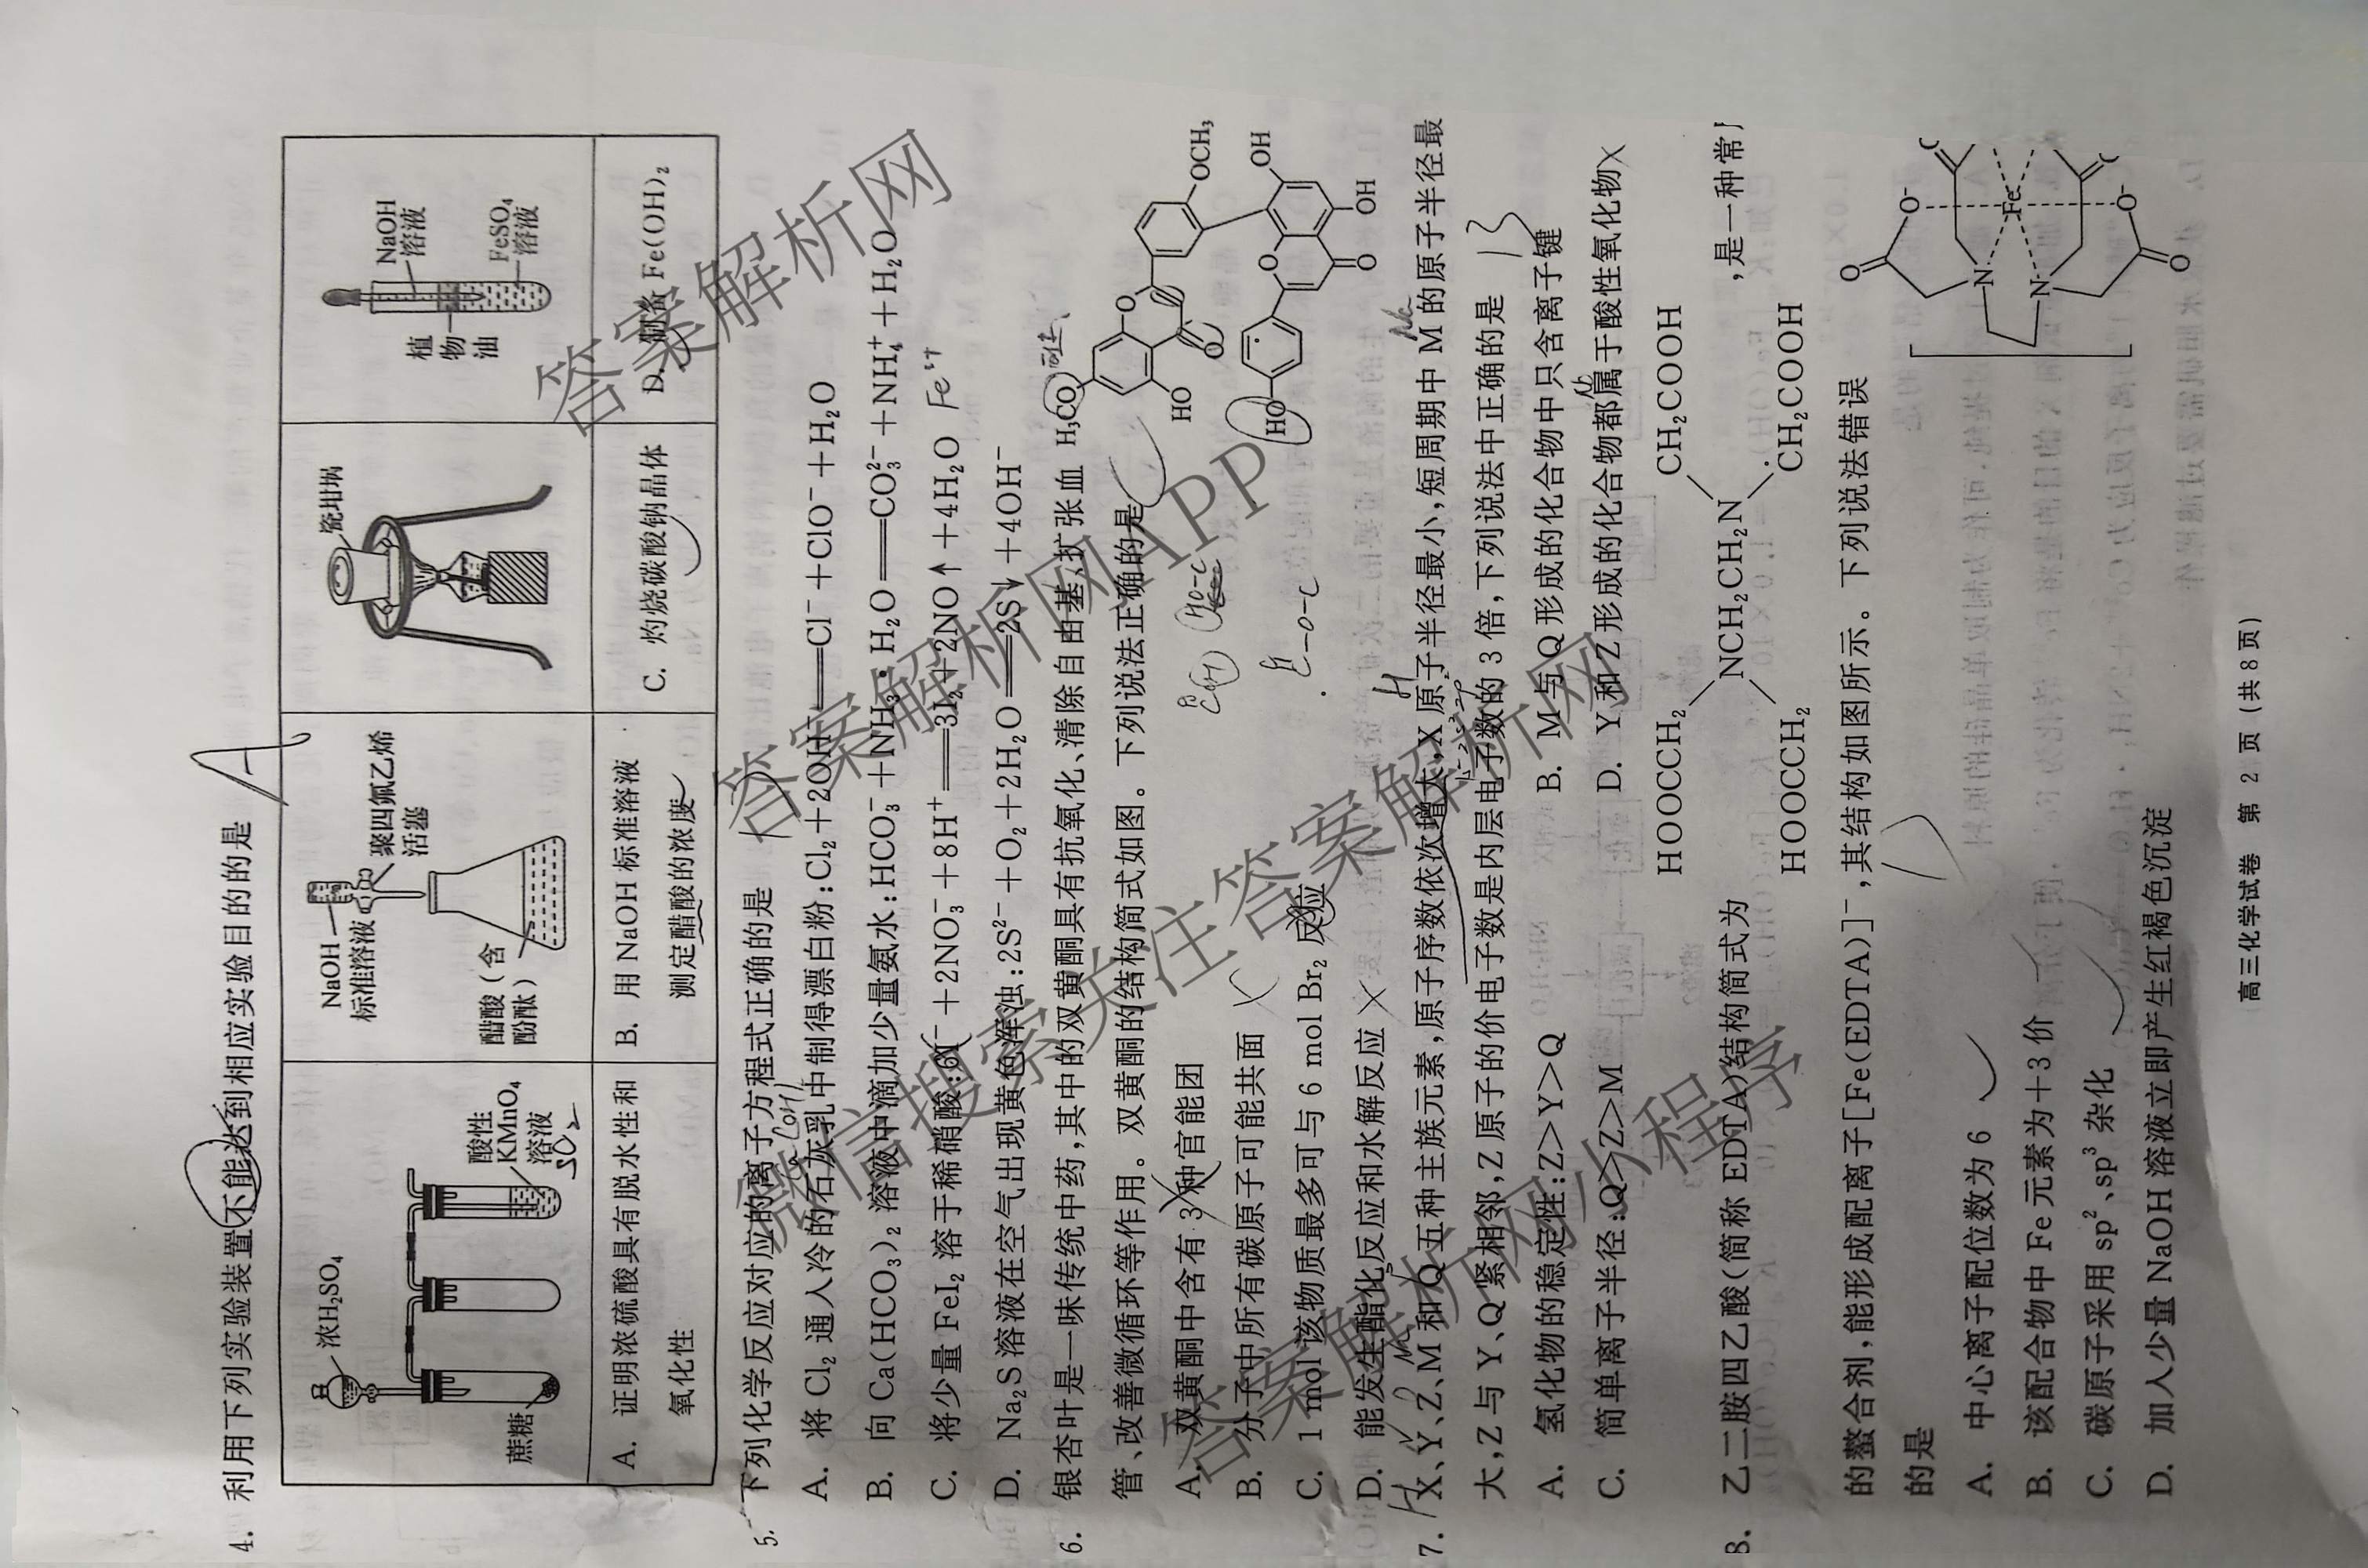 4. 利用下列实验装置不能达到相应实验目的的是
A
浓H₂SO₄
蔗糖
酸性
KMnO₄
溶液
SO₂
NaOH
标准溶液
聚四氟乙烯
活塞
醋酸(含
酚酞)
瓷坩埚
NaOH
溶液
植
物
油
FeSO₄
溶液
A. 证明浓硫酸具有脱水性和
氧化性
B. 用 NaOH 标准溶液
测定醋酸的浓度
C. 灼烧碳酸钠晶体
D. 制备 Fe(OH)₂
5. 下列化学反应对应的离子方程式正确的是
A. 将 Cl₂ 通入冷的石灰乳中制得漂白粉:Cl₂+2OH⁻══Cl⁻+ClO⁻+H₂O
B. 向 Ca(HCO₃)₂ 溶液中滴加少量氨水:HCO₃⁻+NH₃·H₂O══CO₃²⁻+NH₄⁺+H₂O
C. 将少量 FeI₂ 溶于稀硝酸:6I⁻+2NO₃⁻+8H⁺══3I₂+2NO↑+4H₂O
D. Na₂S 溶液在空气出现黄色浑浊:2S²⁻+O₂+2H₂O══2S↓+4OH⁻
6. 银杏叶是一味传统中药,其中的双黄酮具有抗氧化、清除自由基、扩张血
管、改善微循环等作用。双黄酮的结构简式如图。下列说法正确的是
A. 双黄酮中含有 3 种官能团
B. 分子中所有碳原子可能共面
C. 1 mol 该物质最多可与 6 mol Br₂ 反应
D. 能发生酯化反应和水解反应
H₃CO
O
OCH₃
HO
O
O
OH
HO
O
OH
7. X、Y、Z、M 和 Q 五种主族元素,原子序数依次增大,X 原子半径最小,短周期中 M 的原子半径最
大,Z 与 Y、Q 紧相邻,Z 原子的价电子数是内层电子数的 3 倍,下列说法中正确的是
A. 氢化物的稳定性:Z>Y>Q
B. M 与 Q 形成的化合物中只含离子键
C. 简单离子半径:Q>Z>M
D. Y 和 Z 形成的化合物都属于酸性氧化物
8. 乙二胺四乙酸(简称 EDTA)结构简式为
HOOCCH₂
CH₂COOH
NCH₂CH₂N
HOOCCH₂
CH₂COOH
,是一种常
的螯合剂,能形成配离子[Fe(EDTA)]⁻,其结构如图所示。下列说法错误
的是
A. 中心离子配位数为 6
B. 该配合物中 Fe 元素为+3 价
C. 碳原子采用 sp²、sp³ 杂化
D. 加入少量 NaOH 溶液立即产生红褐色沉淀
O
O⁻
N
Fe
N
O⁻
O
高三化学试卷 第 2 页(共 8 页)
答案解析网
答案解析网APP
微信搜索关注答案解析网